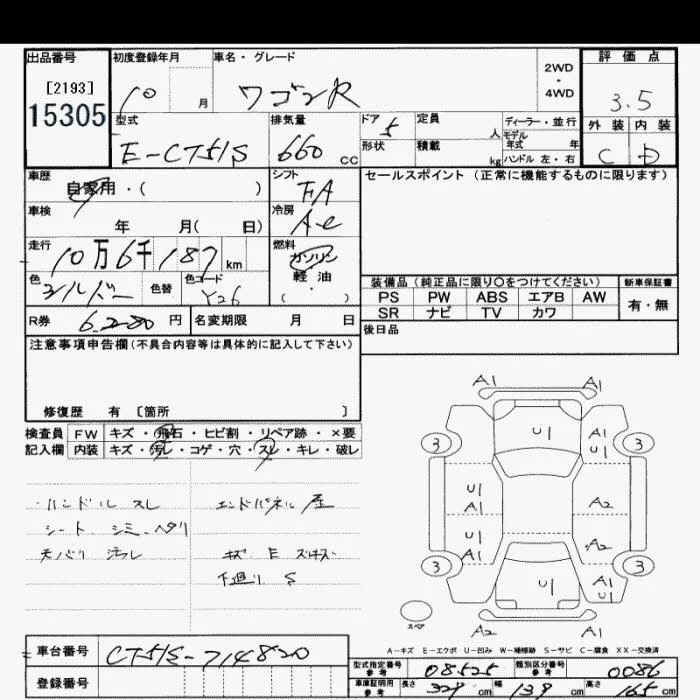 出品番号 初度登録年月 車名・グレード 評価点
[2193]
15305
10 月 ワゴンR 2WD・4WD 3.5
型式 排気量 ドア 定員 ディーラー・並行 外装 内装
E-CT51S 660 CC 5 人 モデル年式 年 C D
形状 積載 kg ハンドル 左・右
車歴 シフト セールスポイント (正常に機能するものに限ります)
自家用・( ) FA
車検 冷房
年 月( 日) A-C
走行 燃料
10万6千187 km ガソリン
軽油
・
( )
色 色替 色コード
シルバー Y26
装備品 (純正品に限り○をつけてください) 新車保証書
PS PW ABS エアB AW 有・無
SR ナビ TV カワ
R券 6.280 円 名変期限 月 日
後日品
注意事項申告欄(不具合内容等は具体的に記入して下さい)
修復歴 有 [箇所 ]
検査員 FW キズ・飛石・ヒビ割・リペア跡・×要
記入欄 内装 キズ・汚レ・コゲ・穴・スレ・キレ・破レ
・ハンドル スレ エンドパネル 歪
シート シミ・ヘタリ
天バリ 汚レ キズ E
下廻り S
A1 A1
U1 A1 U1
3 3
U1 A1 A2
U1 A1 A2
3 3
U1 A1 U1
スペア A2 A1
A-キズ E-エクボ U-凹み W-補修跡 S-サビ C-腐食 XX-交換済
車台番号 CT51S-714820
登録番号
型式指定番号 参考 08525 類別区分番号 参考 0086
車庫証明用 参考 長さ 329 cm 幅 139 cm 高さ 165 cm